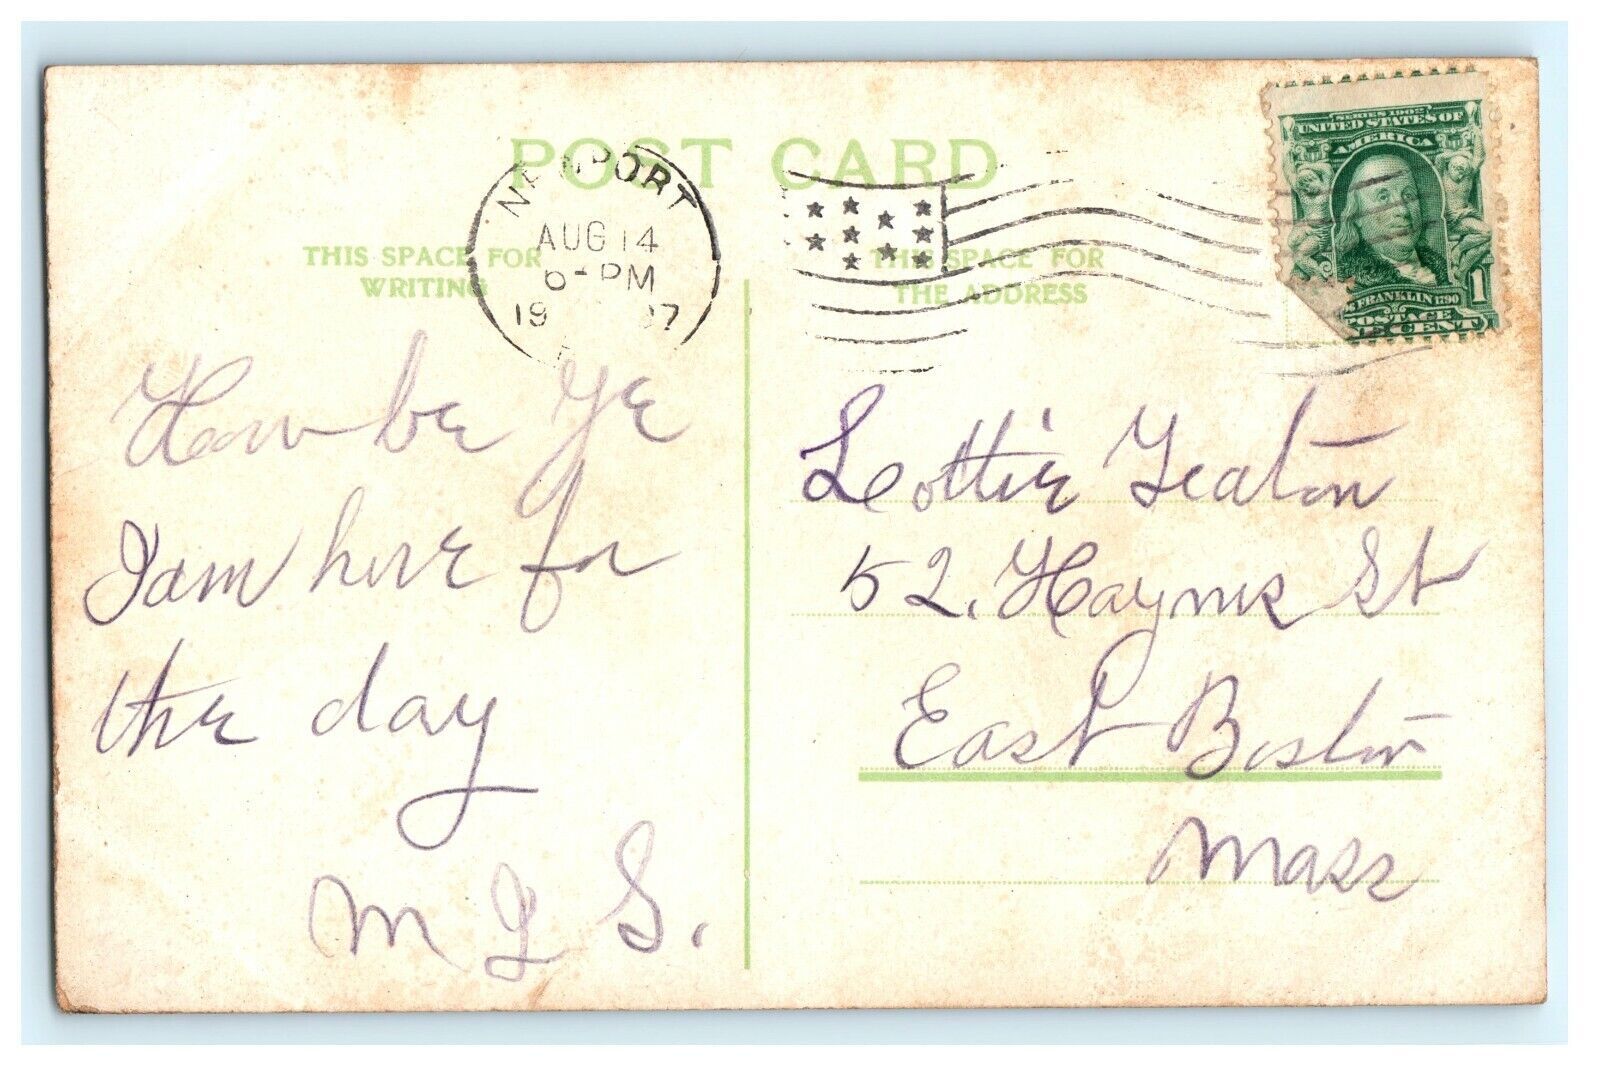 POST CARD
THIS SPACE FOR
WRITING
THIS SPACE FOR
THE ADDRESS
NEWPORT
AUG 14
6-PM
1907
SERIES 1902
UNITED STATES OF
AMERICA
FRANKLIN 1790
POSTAGE
1 CENT
How be Ye
I am here for
the day
M J S.
Lottie Yeaton
52. Haynes St
East Boston
Mass